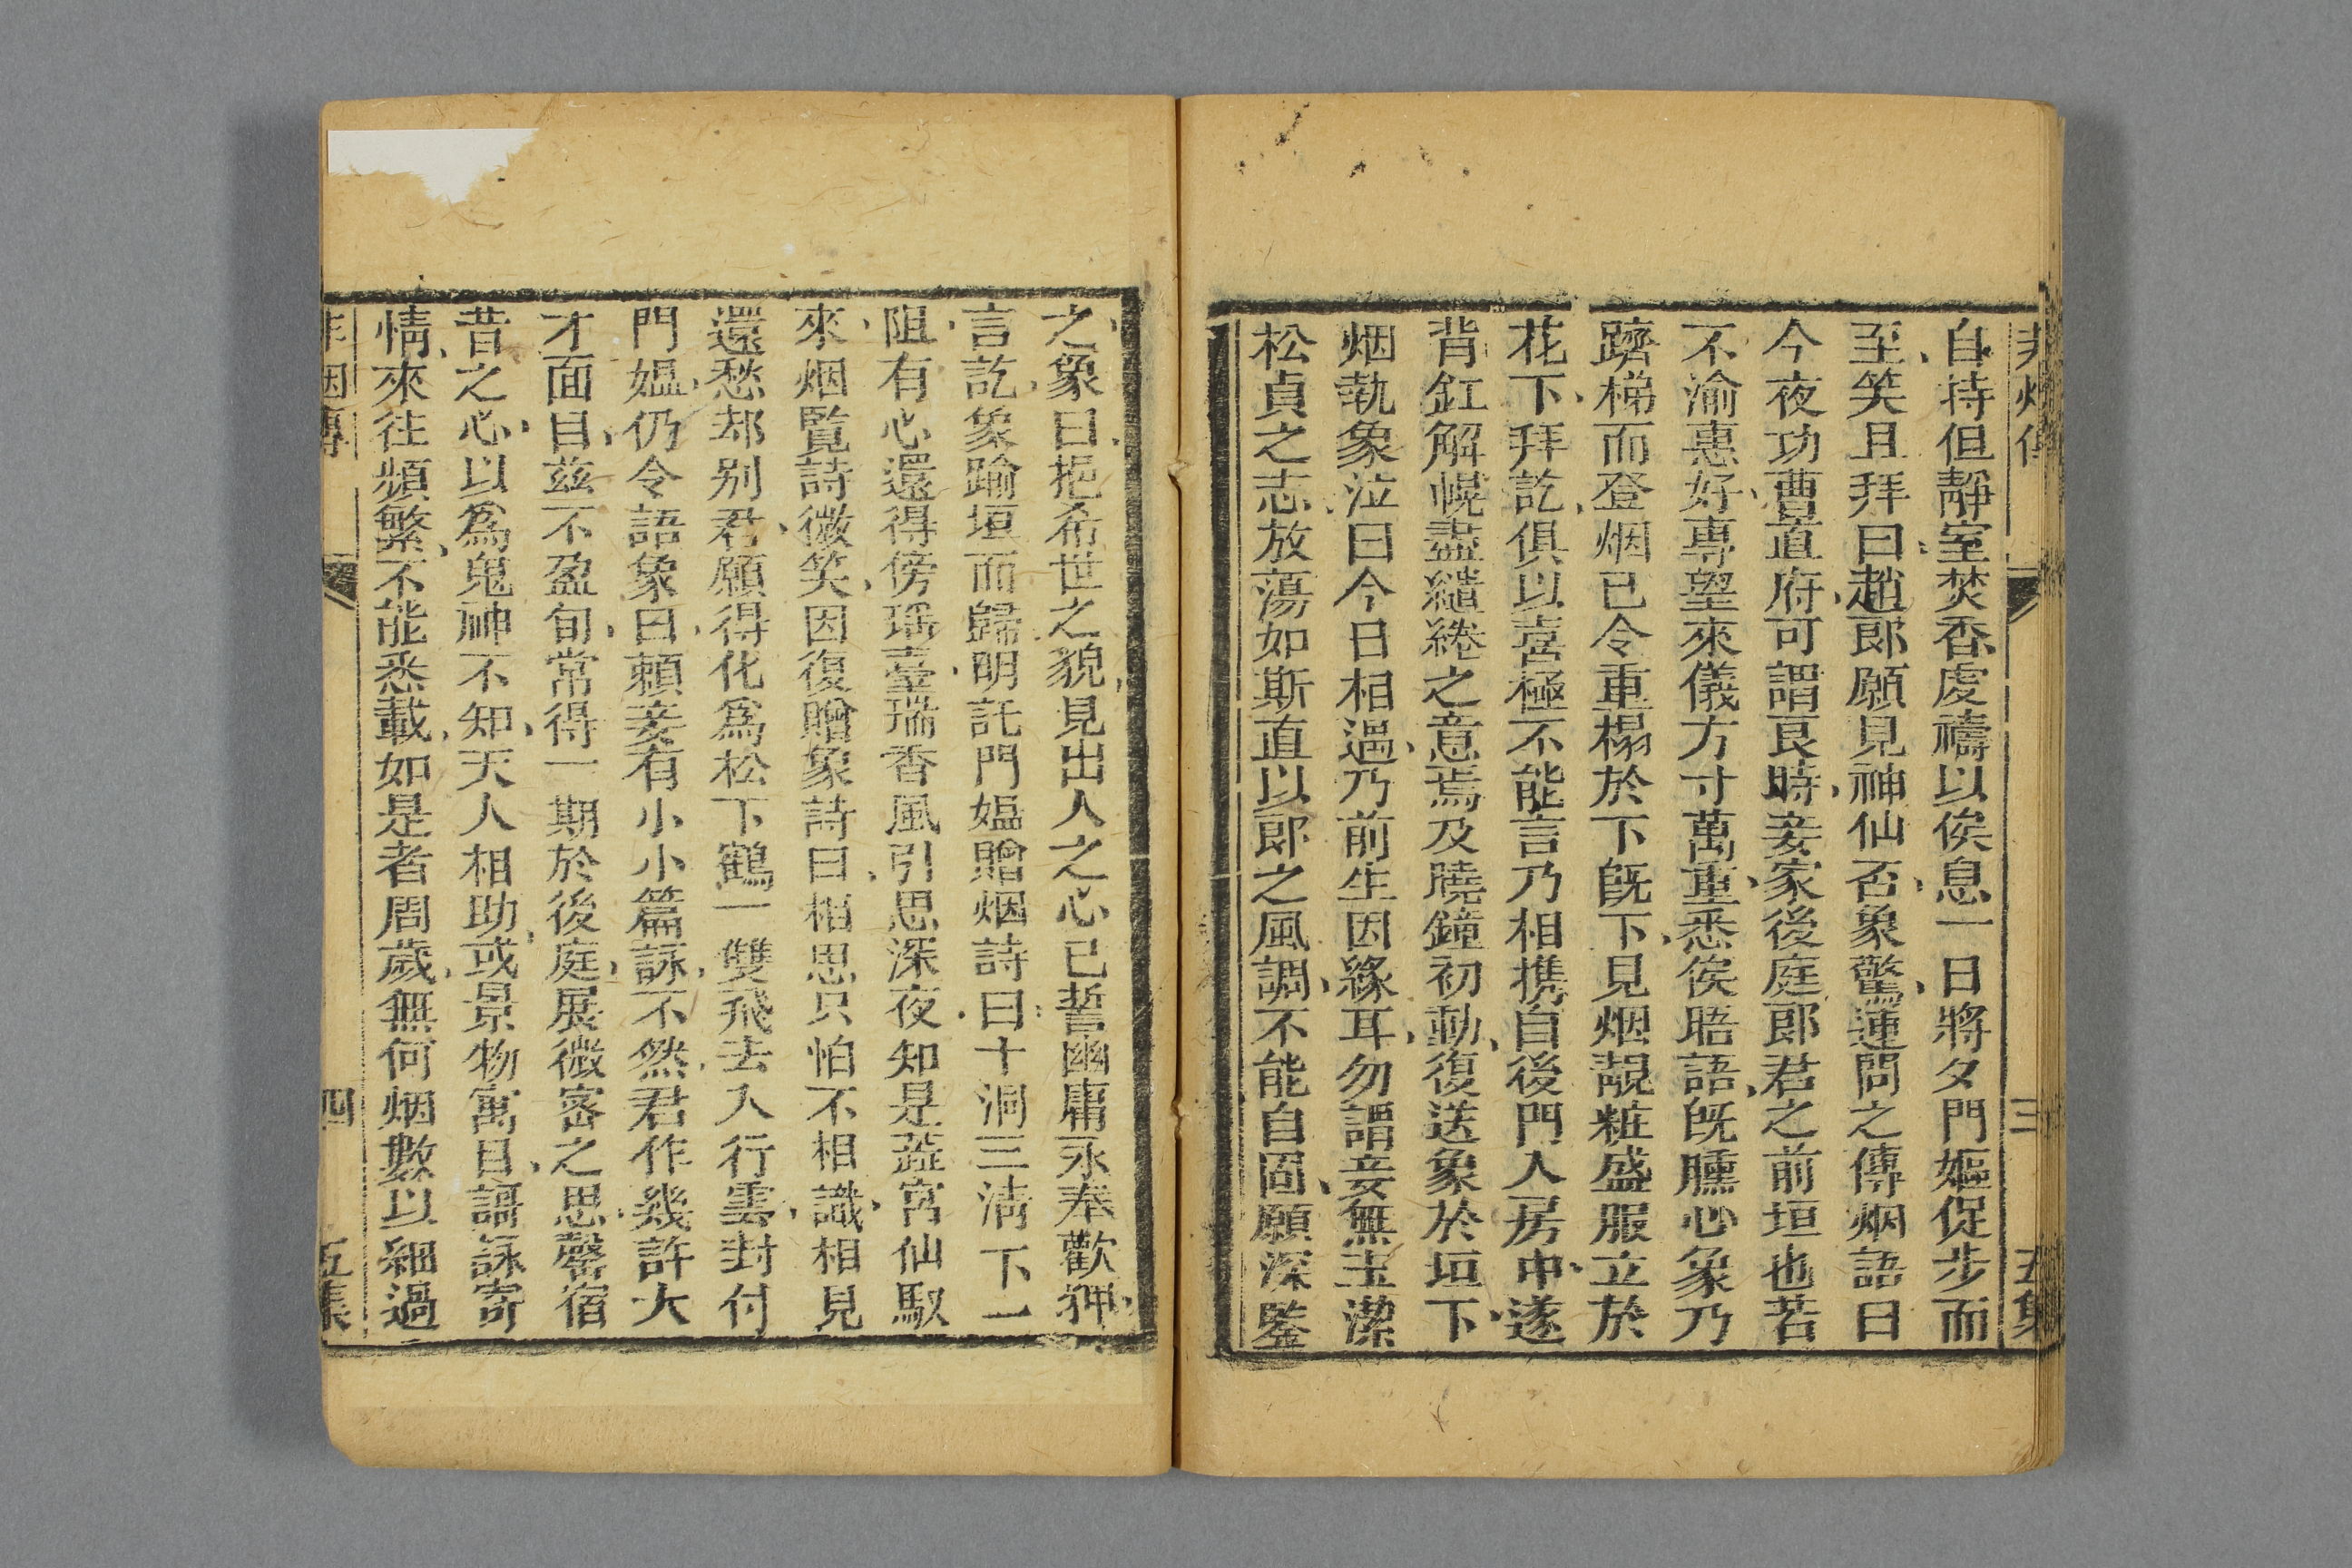 自持但靜室焚香虔禱以俟息一日將夕門嫗促步而
至笑且拜曰趙郎願見神仙否象驚連問之傳烟語曰
今夜功曹直府可謂良時妾家後庭郎君之前垣也若
不渝惠好專望來儀方寸萬重悉俟晤語旣臛心象乃
躋梯而登烟已令重榻於下旣下見烟靚粧盛服立於
花下拜訖俱以喜極不能言乃相携自後門入房中遂
背釭解幌盡繾綣之意焉及曉鐘初動復送象於垣下
烟執象泣曰今日相遇乃前生因緣耳勿謂妾無玉潔
松貞之志放蕩如斯直以郎之風調不能自固願深鑒
之象曰挹希世之貌見出人之心已誓幽庸永奉歡狎
言訖象踰垣而歸明託門媼贈烟詩曰十洞三清下一
阻有心還得傍瑶臺瑞香風引思深夜知是蕋宮仙馭
來烟覽詩微笑因復贈象詩曰相思只怕不相識相見
還愁却别君願得化爲松下鶴一雙飛去入行雲封付
門媼仍令語象曰頼妾有小小篇詠不然君作幾許大
才面目茲不盈旬常得一期於後庭展微密之思罄宿
昔之心以爲鬼神不知天人相助或景物寓目謌詠寄
情來往頻繁不能悉載如是者周歲無何烟數以細過
四
五集